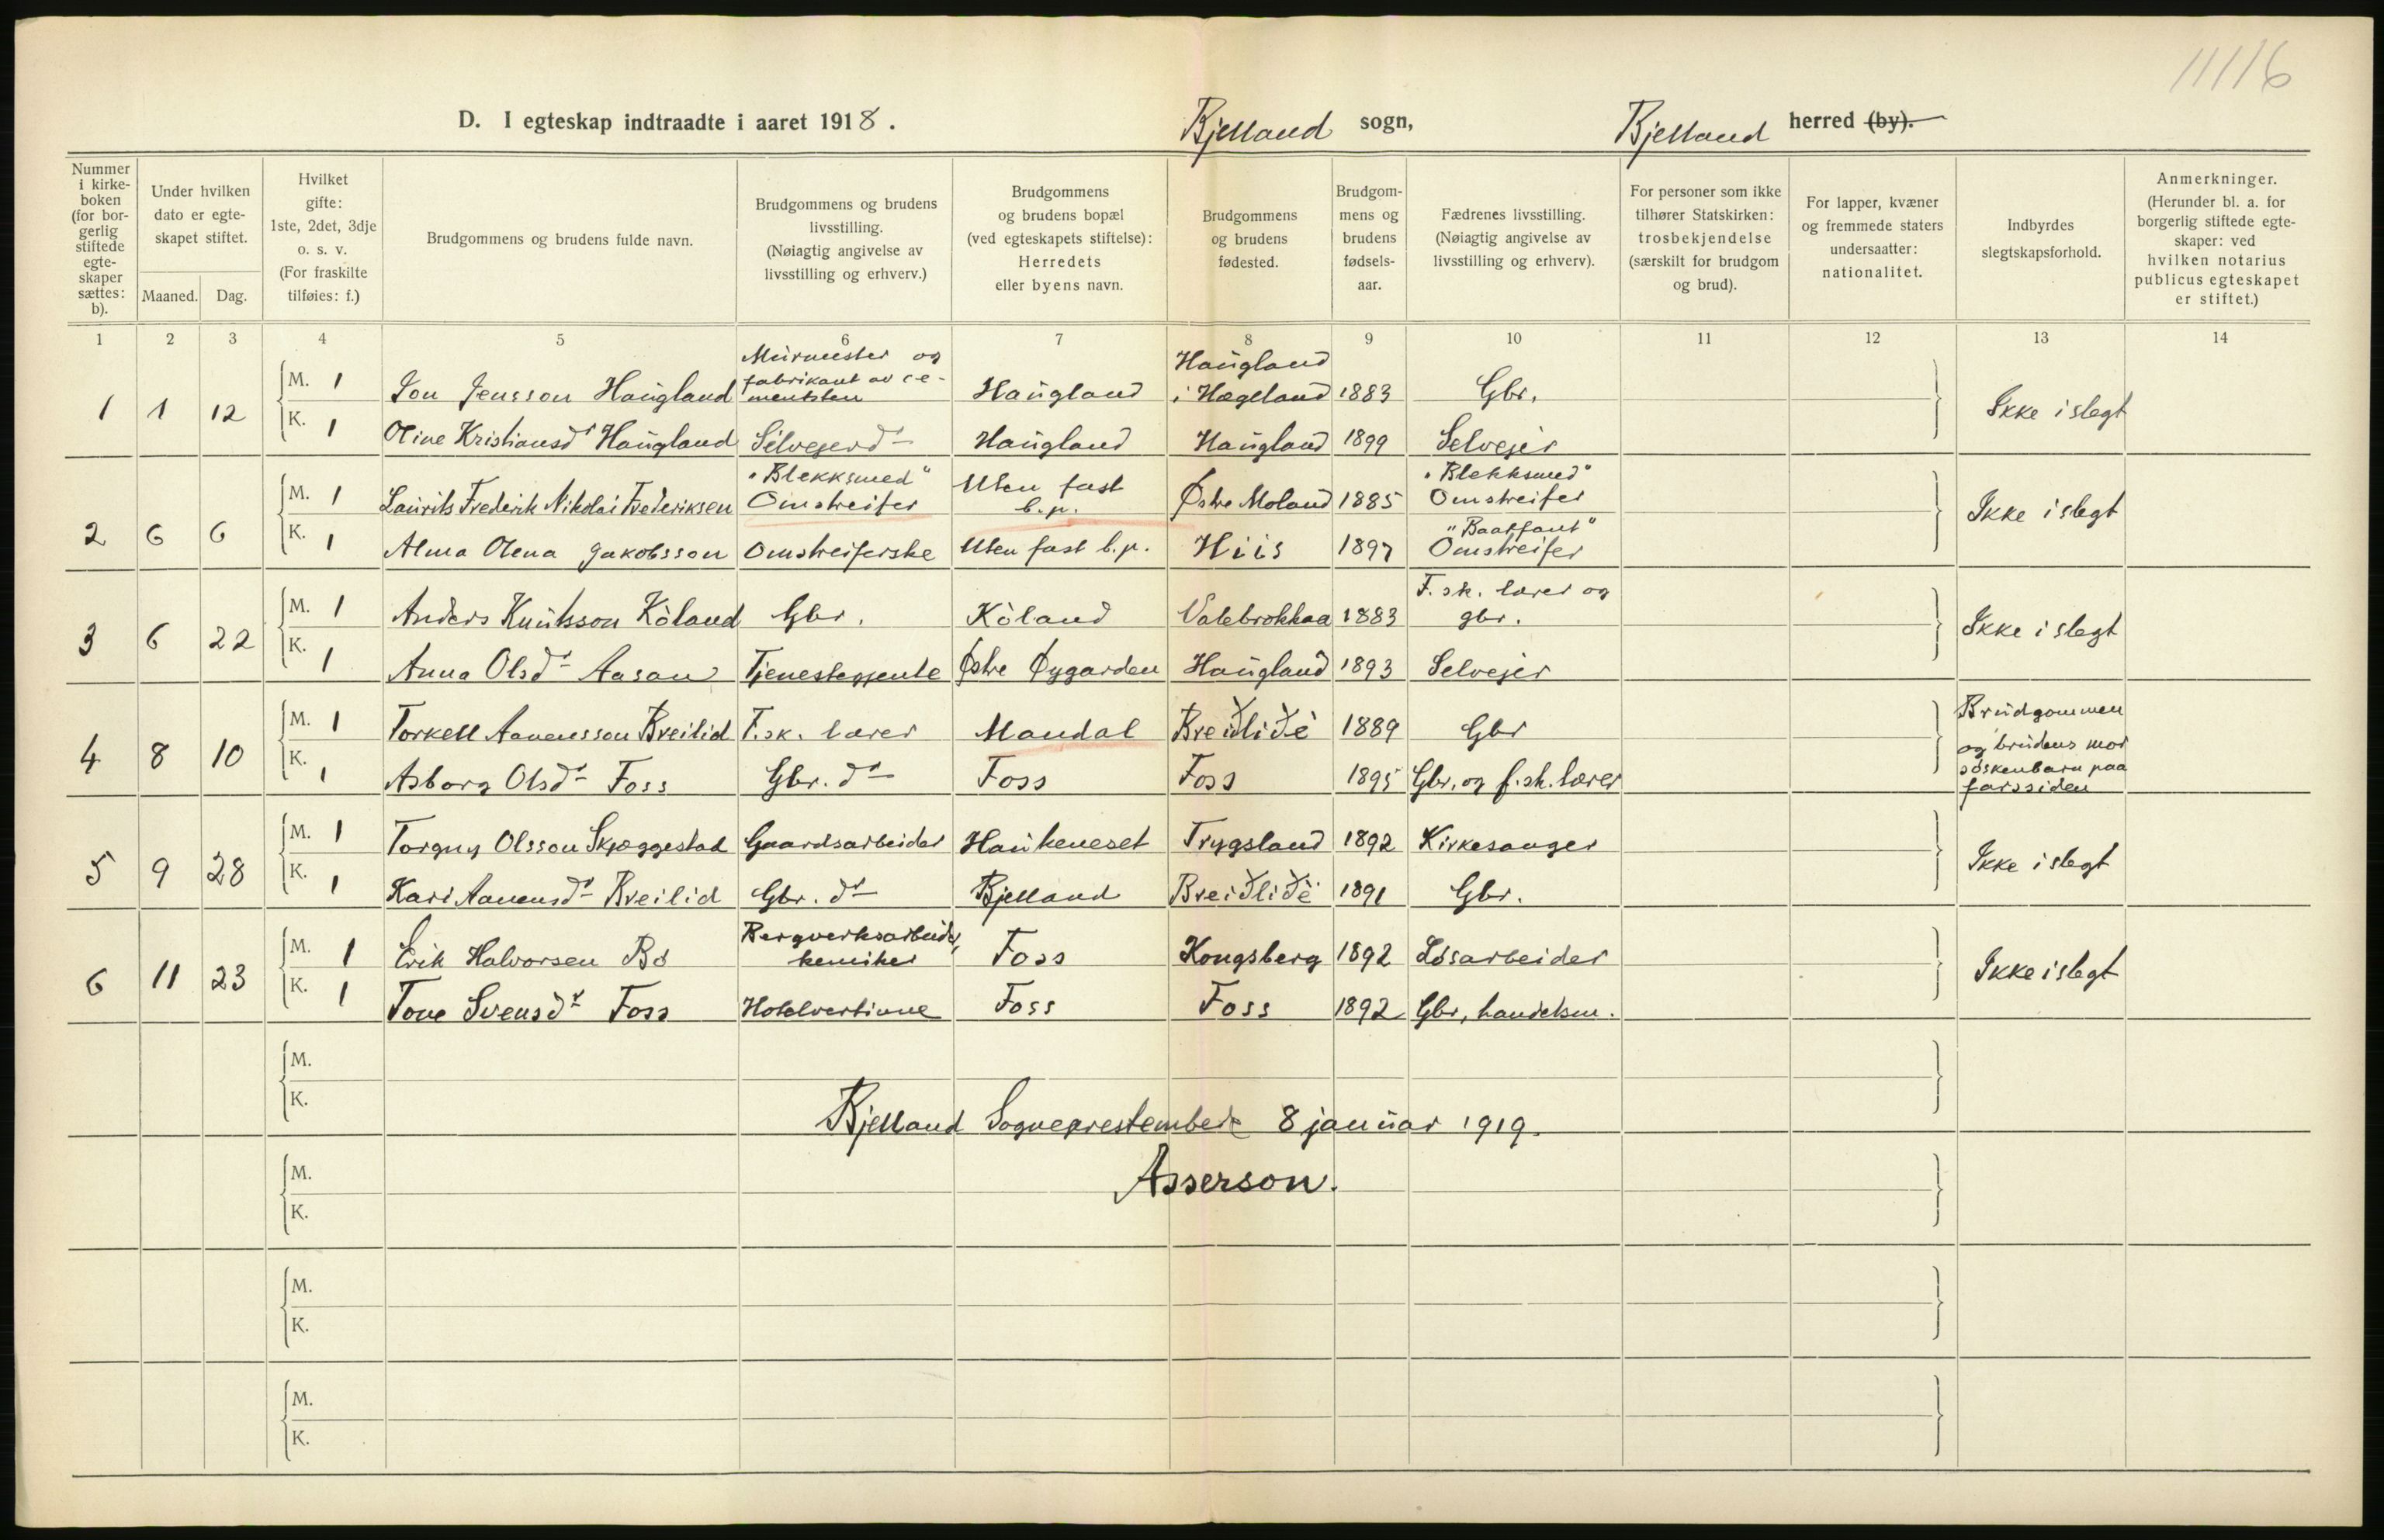 11116
D. I egteskap indtraadte i aaret 1918. Bjelland sogn, Bjelland herred (by).
Nummer i kirkeboken (for borgerlig stiftede egteskaper sættes: b).
Under hvilken dato er egteskapet stiftet.
Maaned. Dag.
Hvilket gifte: 1ste, 2det, 3dje o. s. v. (For fraskilte tilføies: f.)
Brudgommens og brudens fulde navn.
Brudgommens og brudens livsstilling. (Nøiagtig angivelse av livsstilling og erhverv.)
Brudgommens og brudens bopæl (ved egteskapets stiftelse): Herredets eller byens navn.
Brudgommens og brudens fødested.
Brudgommens og brudens fødselsaar.
Fædrenes livsstilling. (Nøiagtig angivelse av livsstilling og erhverv).
For personer som ikke tilhører Statskirken: trosbekjendelse (særskilt for brudgom og brud).
For lapper, kvæner og fremmede staters undersaatter: nationalitet.
Indbyrdes slegtskapsforhold.
Anmerkninger. (Herunder bl. a. for borgerlig stiftede egteskaper: ved hvilken notarius publicus egteskapet er stiftet.)
1 2 3 4 5 6 7 8 9 10 11 12 13 14
1 1 12 M. 1 Jon Jensson Haugland Murmester og fabrikant av cementsten Haugland Haugland i Hægeland 1883 Gbr. Ikke i slegt
K. 1 Oline Kristiansdr Haugland Selvejerdr Haugland Haugland 1899 Selvejer
2 6 6 M. 1 Laurits Frederik Nikolai Frederiksen "Blekksmed" Omstreifer Uten fast b.p. Østre Moland 1885 "Blekksmed" Omstreifer Ikke i slegt
K. 1 Alma Olena Jakobsson Omstreiferske Uten fast b.p. Hiis 1897 "Baatfant" Omstreifer
3 6 22 M. 1 Anders Knutsson Kòland Gbr. Kòland Valebrokkaa 1883 F.sk. lærer og gbr. Ikke i slegt
K. 1 Anna Olsdr Aasan Tjenestegjente Østre Øygarden Haugland 1893 Selvejer
4 8 10 M. 1 Torkell Aanensson Breilid F.sk. lærer Mandal Breidlidè 1889 Gbr Brudgommen og brudens mor søskenbarn paa farssiden
K. 1 Asborg Olsdr Foss Gbr. dr Foss Foss 1895 Gbr. og f.sk. lærer
5 9 28 M. 1 Torgny Olsson Skjæggestad Gaardsarbeider Haukeneset Trygsland 1892 Kirkesanger Ikke i slegt
K. 1 Kari Aanensdr Breilid Gbr. dr Bjelland Breidlidè 1891 Gbr.
6 11 23 M. 1 Erik Halvorsen Bø Bergverksarbeider, kemiker Foss Kongsberg 1892 Løsarbeider Ikke i slegt
K. 1 Tone Svensdr Foss Hotelvertinne Foss Foss 1892 Gbr, handelsm.
M.
K.
Bjelland Sogneprestembede 8 januar 1919.
M.
Asserson.
K.
M.
K.
M.
K.